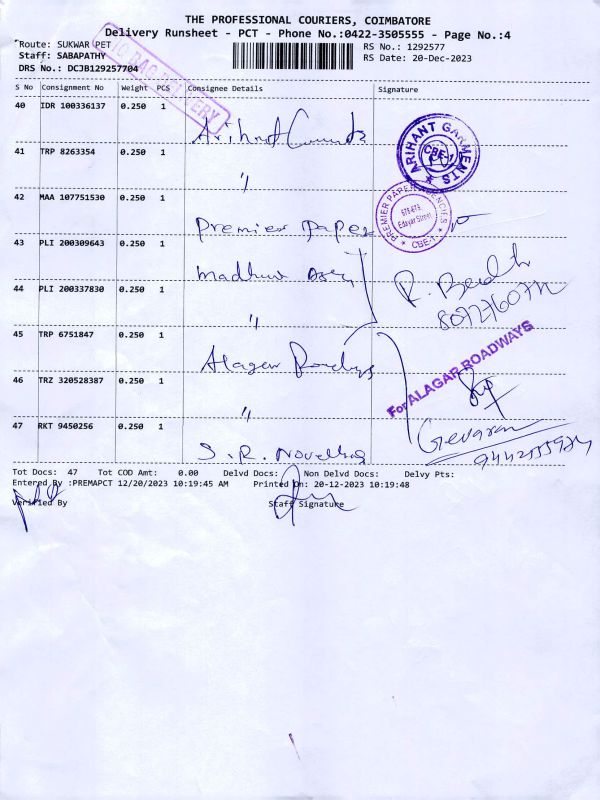 THE PROFESSIONAL COURIERS, COIMBATORE
Delivery Runsheet - PCT - Phone No.:0422-3505555 - Page No.:4
Route: SUKWAR PET
RS No.: 1292577
Staff: SABAPATHY
RS Date: 20-Dec-2023
DRS No.: DCJB129257704
S No Consignment No Weight PCS Consignee Details Signature
40 IDR 100336137 0.250 1
Arihant
ARIHANT GARMENTS
CBE-1
41 TRP 8263354 0.250 1
"
42 MAA 107751530 0.250 1
Premier Paper
PREMIER PAPER AGENCIES
Edayar Street
CBE-1
43 PLI 200309643 0.250 1
Madhur
44 PLI 200337830 0.250 1
"
45 TRP 6751847 0.250 1
Alagar
For ALAGAR ROADWAYS
46 TRZ 320528387 0.250 1
"
47 RKT 9450256 0.250 1
S.R. Novelties
Tot Docs: 47 Tot COD Amt: 0.00 Delvd Docs: Non Delvd Docs: Delvy Pts:
Entered By :PREMAPCT 12/20/2023 10:19:45 AM Printed On: 20-12-2023 10:19:48
Verified By Staff Signature